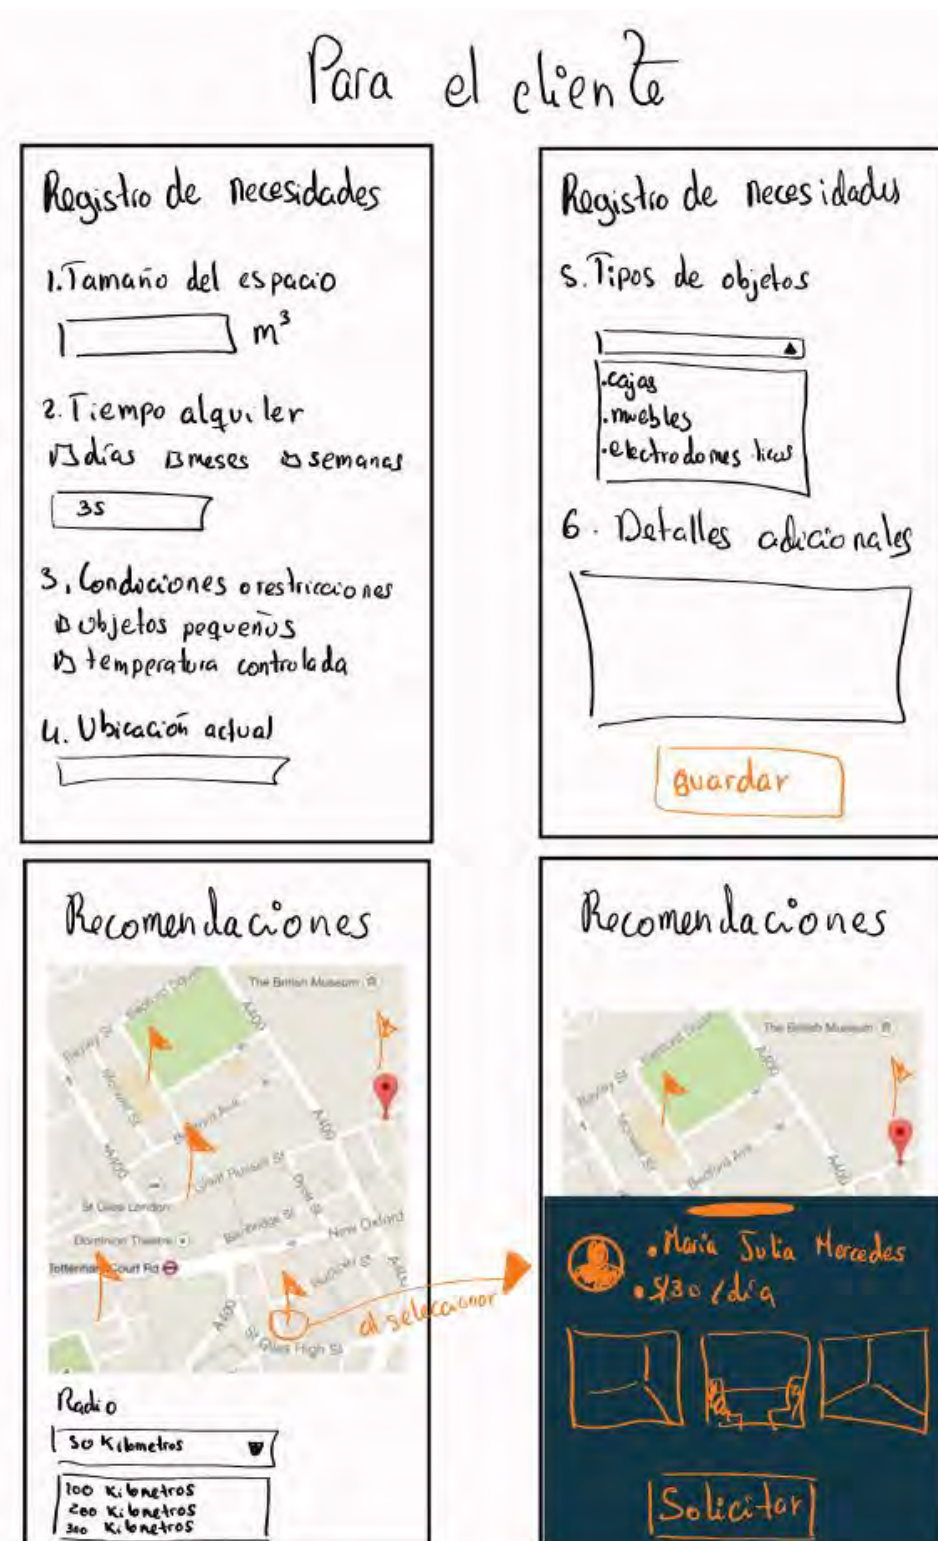 Para el cliente
Registro de necesidades
1. Tamaño del espacio
m³
2. Tiempo alquiler
días meses semanas
35
3. Condiciones o restricciones
objetos pequeños
temperatura controlada
4. Ubicación actual
Registro de necesidades
5. Tipos de objetos
.cajas
.muebles
.electrodomesticos
6. Detalles adicionales
guardar
Recomendaciones
The British Museum
Bedford Square
A400
Bayley St
Bedford Ave
A400
A400
Great Russell St
Dyott St
St Giles London
Bainbridge St
New Oxford
Dominion Theatre
Tottenham Court Rd
Bucknall St
A400
St Giles High St
al seleccionar
Radio
50 Kilometros
100 Kilometros
200 Kilometros
300 Kilometros
Recomendaciones
The British Museum
A400
Bayley St
Bedford Ave
A400
• Maria Julia Mercedes
• S/30 / día
Solicitar